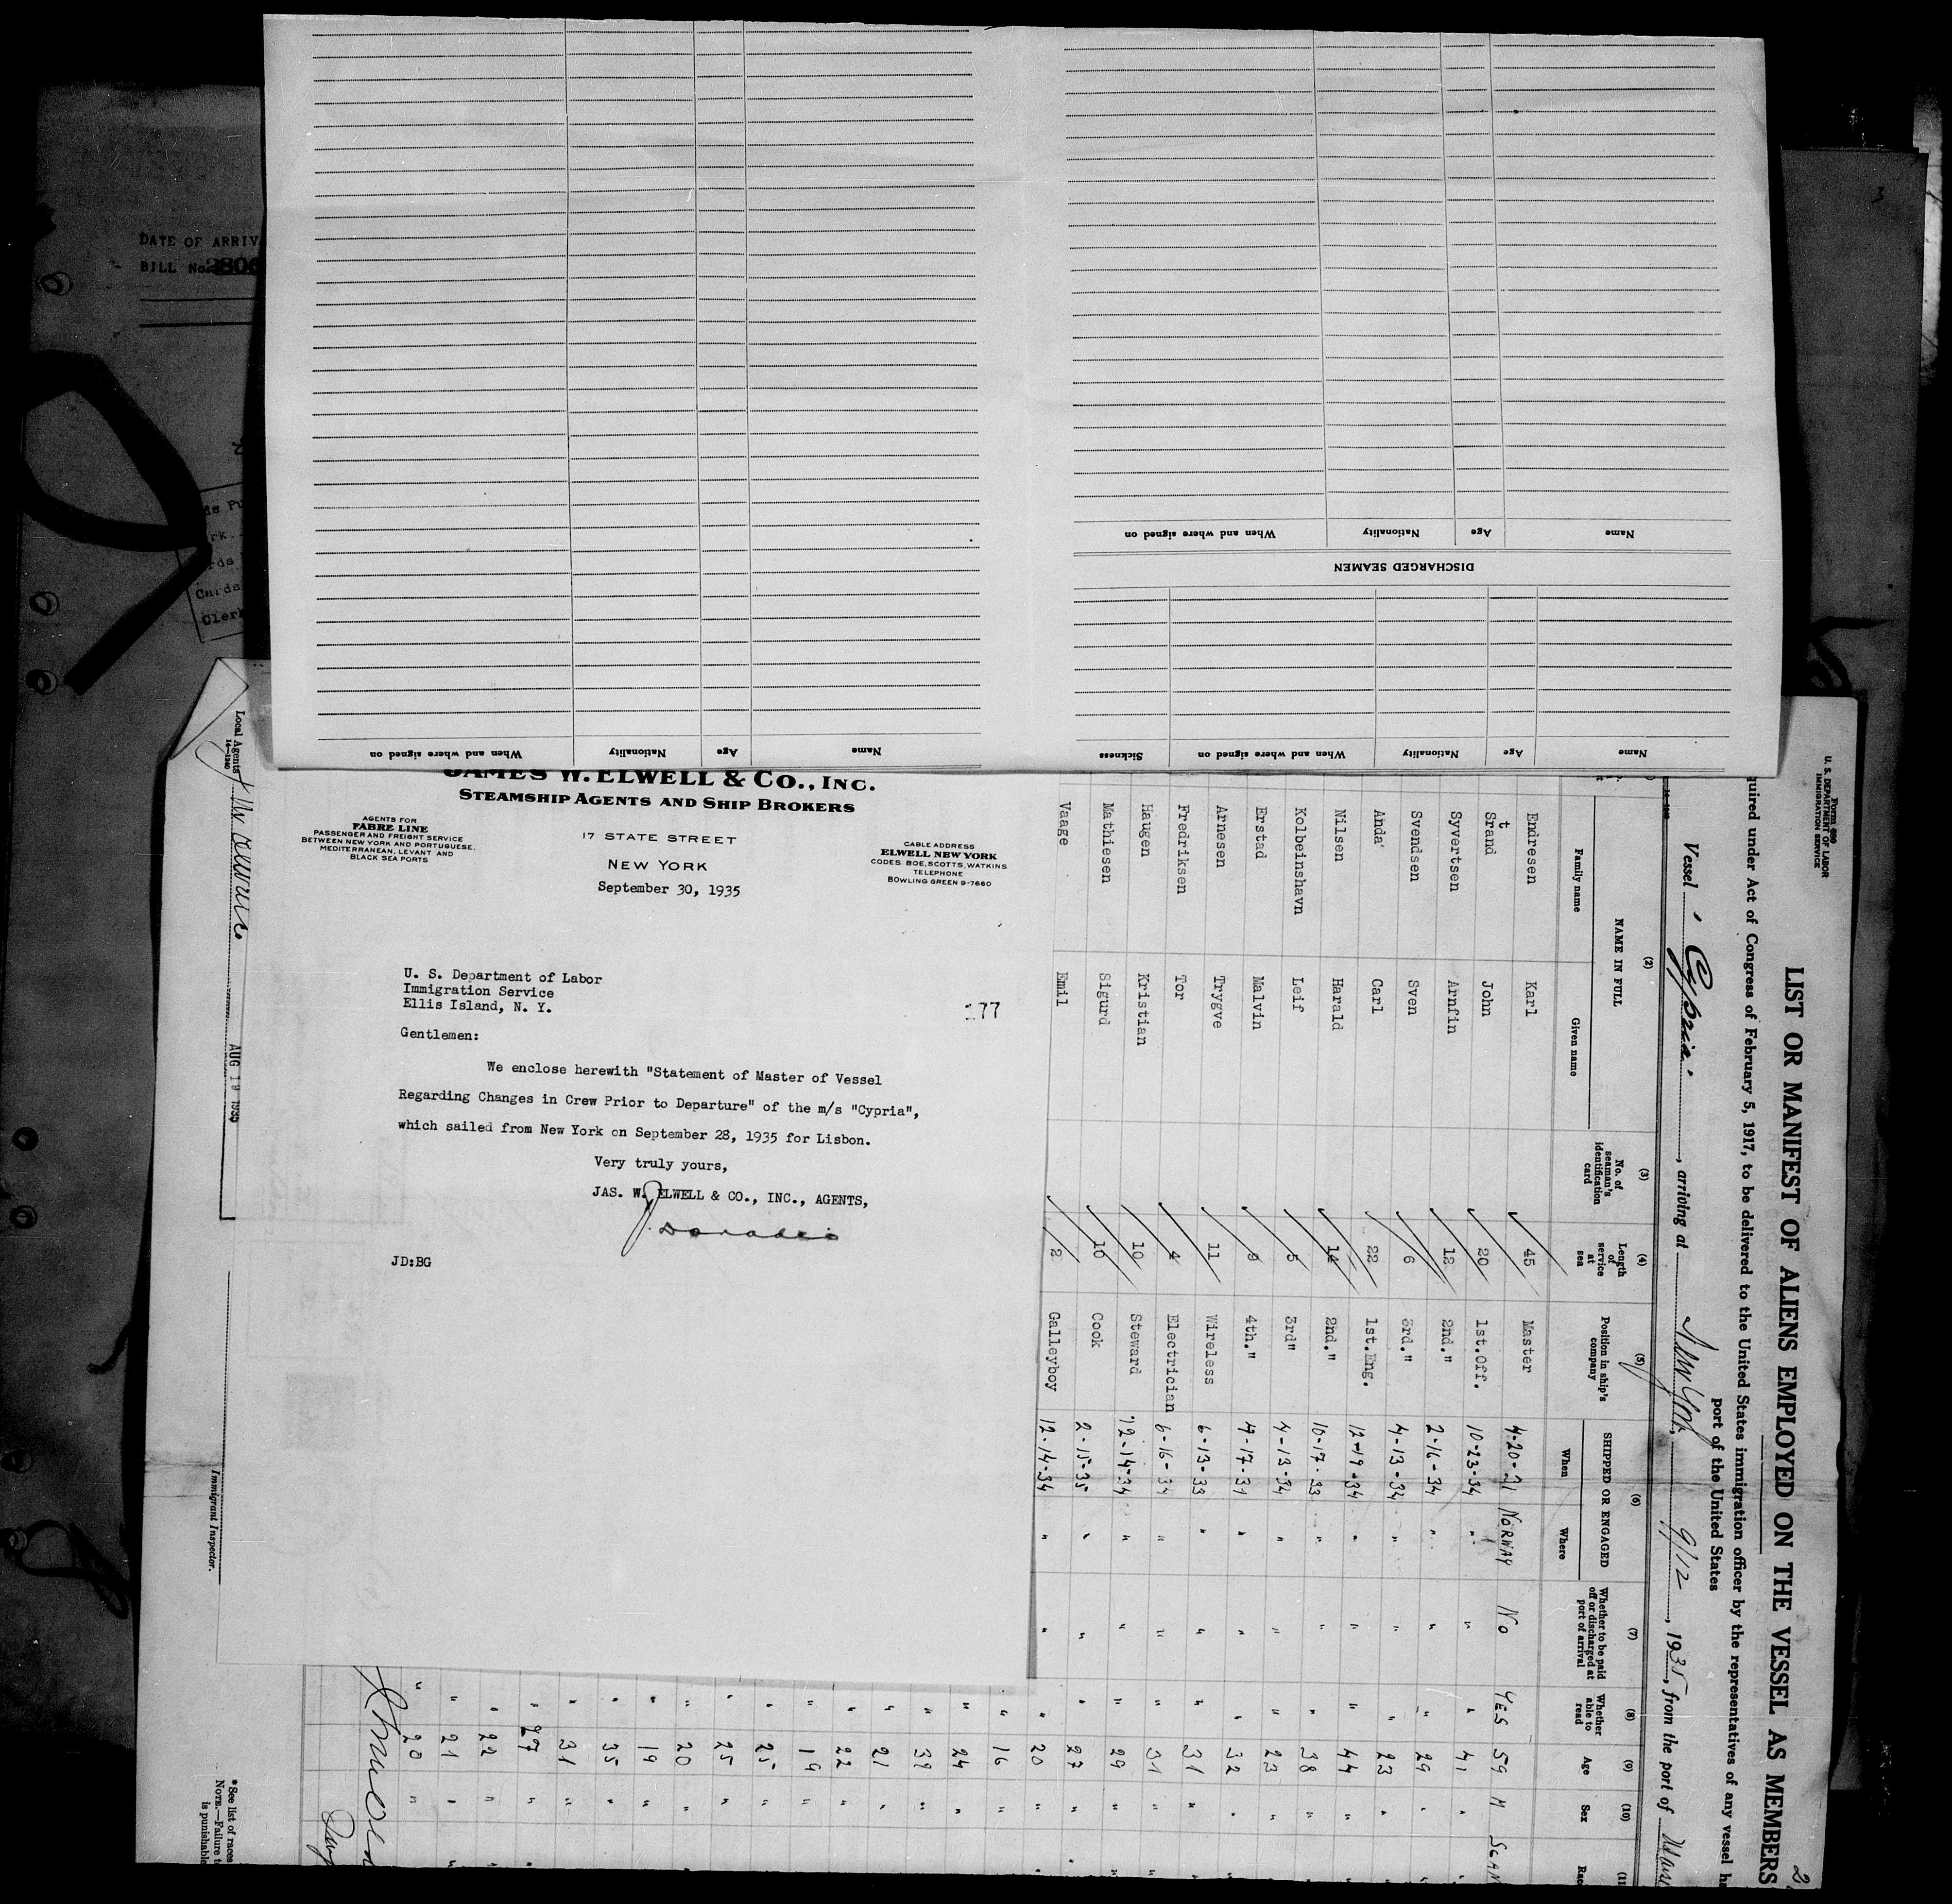 DATE OF ARRIV
BILL No.
Clerk
Name
Age
Nationality
When and where signed on
DISCHARGED SEAMEN
Name
Age
Nationality
When and where signed on
Sickness
Name
Age
Nationality
When and where signed on
JAMES W. ELWELL & CO., INC.
STEAMSHIP AGENTS AND SHIP BROKERS
AGENTS FOR
FABRE LINE
PASSENGER AND FREIGHT SERVICE
BETWEEN NEW YORK AND PORTUGUESE,
MEDITERRANEAN, LEVANT AND
BLACK SEA PORTS
17 STATE STREET
NEW YORK
CABLE ADDRESS
ELWELL NEW YORK
CODES: BOE, SCOTTS, WATKINS
TELEPHONE
BOWLING GREEN 9-7660
September 30, 1935
U. S. Department of Labor
Immigration Service
Ellis Island, N. Y.
177
Gentlemen:
We enclose herewith "Statement of Master of Vessel
Regarding Changes in Crew Prior to Departure" of the m/s "Cypria",
which sailed from New York on September 28, 1935 for Lisbon.
Very truly yours,
JAS. W. ELWELL & CO., INC., AGENTS,
JD:BG
Local Agents
AUG 19 1935
Immigrant Inspector.
*See list of races
NOTE.—Failure t
is punishable
Form 689
U. S. DEPARTMENT OF LABOR
IMMIGRATION SERVICE
LIST OR MANIFEST OF ALIENS EMPLOYED ON THE VESSEL AS MEMBERS
quired under Act of Congress of February 5, 1917, to be delivered to the United States immigration officer by the representatives of any vessel ha
port of the United States
Vessel "Cypria", arriving at New York, 9/12, 1935, from the port of
(2) (3) (4) (5) (6) (7) (8) (9) (10) (11
NAME IN FULL
Family name Given name
No. of seaman's identification card
Length of service at sea
Position in ship's company
SHIPPED OR ENGAGED
When Where
Whether to be paid off or discharged at port of arrival
Whether able to read
Age
Sex
Rac
Endresen Karl 45 Master 4-20-21 NORWAY No YES 59 M SCAN
t
Srand John 20 1st.Off. 10-23-34 " " " 41 "
Syvertsen Arnfin 12 2nd." 2-16-34 " " " 29 "
Svendsen Sven 6 3rd." 4-13-34 " " " 23 "
Anda' Carl 22 1st.Eng. 12-19-34 " " " 44 "
Nilsen Harald 14 2nd." 10-17-33 " " " 38 "
Kolbeinshavn Leif 5 3rd" 4-13-34 " " " 23 "
Erstad Malvin 9 4th." 4-17-31 " " " 32 "
Arnesen Trygve 11 Wireless 6-13-33 " " " 31 "
Fredriksen Tor 4 Electrician 6-16-34 " " " 31 "
Haugen Kristian 10 Steward 12-14-34 " " " 29 "
Mathiesen Sigurd 10 Cook 2-15-35 " " " 27 "
Vaage Emil 2 Galleyboy 12-14-34 " " " 20 "
" 16 "
" 24 "
" 39 "
" 21 "
" 22 "
" 19 "
" 25 "
" 25 "
" 20 "
" 19 "
" 35 "
" 31 "
" 27 "
" 22 "
" 21 "
" 20 "